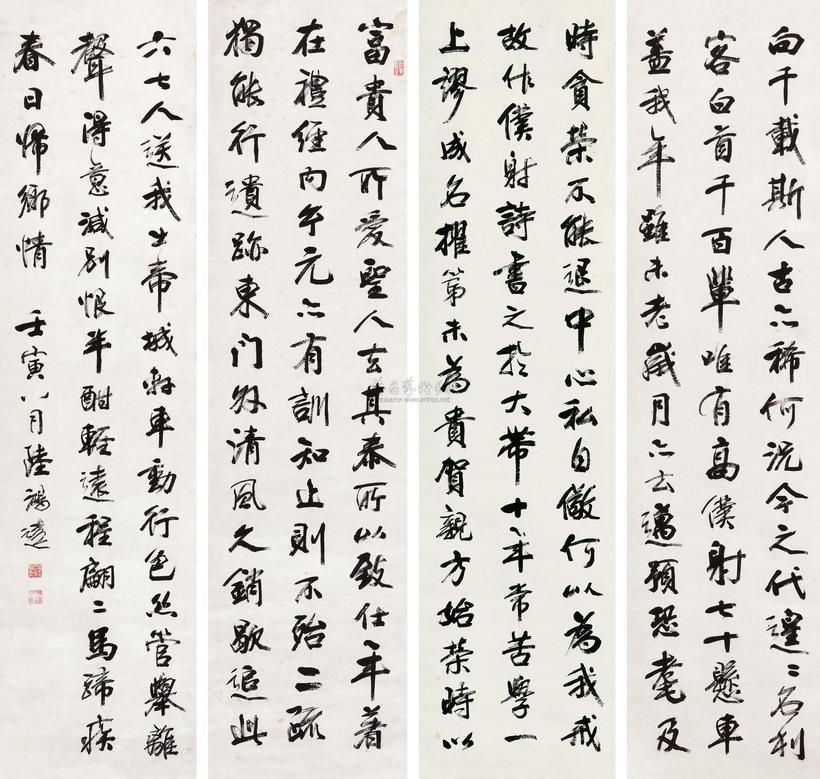 向千載斯人古亦稀何況今之代遑〻名利
客白首千百輩唯有高僕射七十懸車
蓋我年雖未老歲月亦云邁預恐耄及
時貪榮不能退中心私自儆何以為我戒
故作僕射詩書之於大帶十年常苦學一
上謬成名擢第未為貴賀親方始榮時以
富貴人所愛聖人去其泰所以致仕年著
在禮經內玄元亦有訓知止則不殆二疏
獨能行遺跡東門外清風久銷歇迨此
六七人送我出帝城軒車動行色絲管舉離
聲得意減別恨半酣輕遠程翩〻馬蹄疾
春日歸鄉情 壬寅八月陸鴻逵